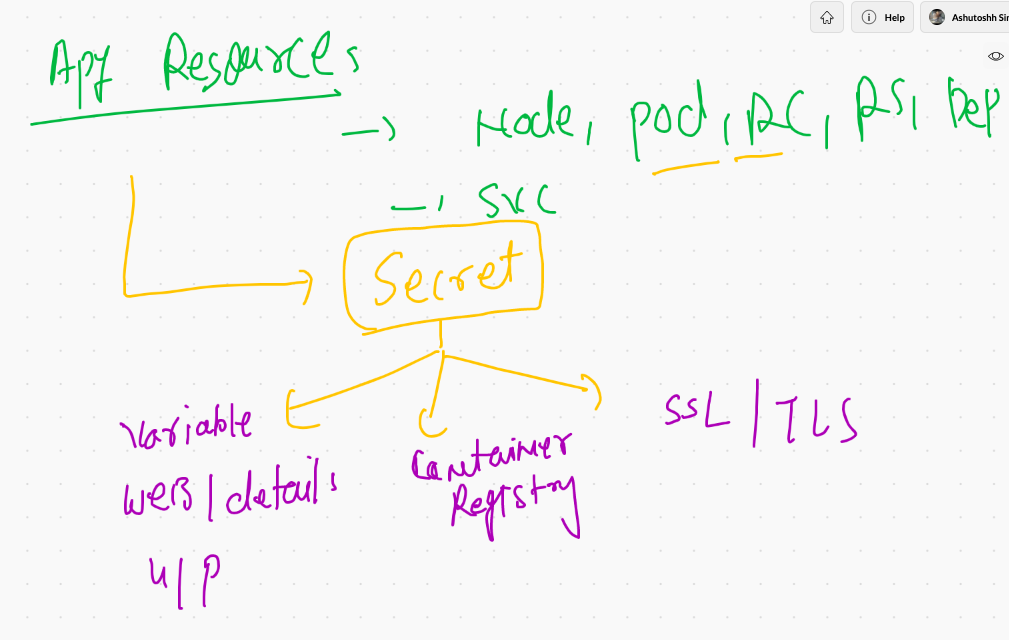 Help
Ashutoshh Sin
Apy Resources
Node, pod, RC, RS, Dep
svc
Secret
Variable
WEB/details
U/P
Container
Registry
SSL/TLS